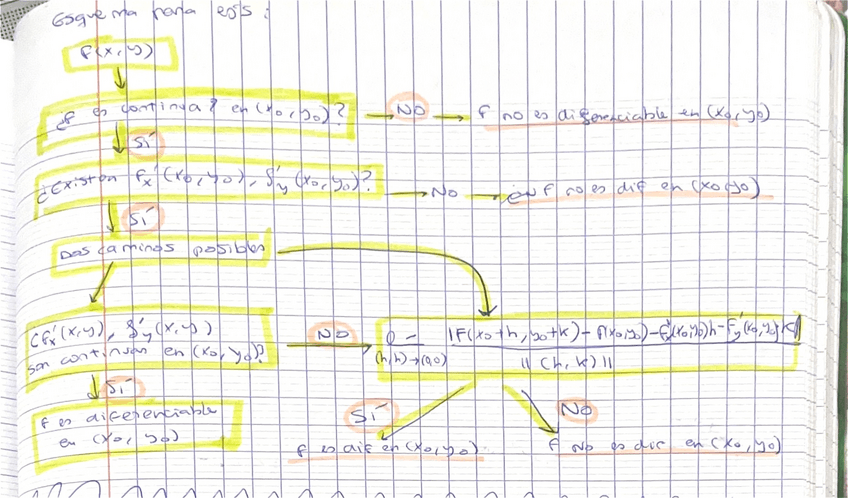 Esquema para ejs:
f(x,y)
¿f es continua? en (x₀,y₀)? → NO → f no es diferenciable en (x₀,y₀)
SÍ
¿Existen f'x(x₀,y₀), f'y(x₀,y₀)? → No → f no es dif en (x₀,y₀)
SÍ
Dos caminos posibles
¿f'x(x,y), f'y(x,y)
son continuas en (x₀,y₀)?
NO
0 = |F(x₀+h, y₀+k) - f(x₀,y₀) - f'x(x₀,y₀)h - F'y(x₀,y₀)k|
(h,k)→(0,0) ||(h,k)||
SÍ
f es diferenciable
en (x₀, y₀)
SÍ
NO
f es dif en (x₀,y₀)
f No es dif en (x₀,y₀)